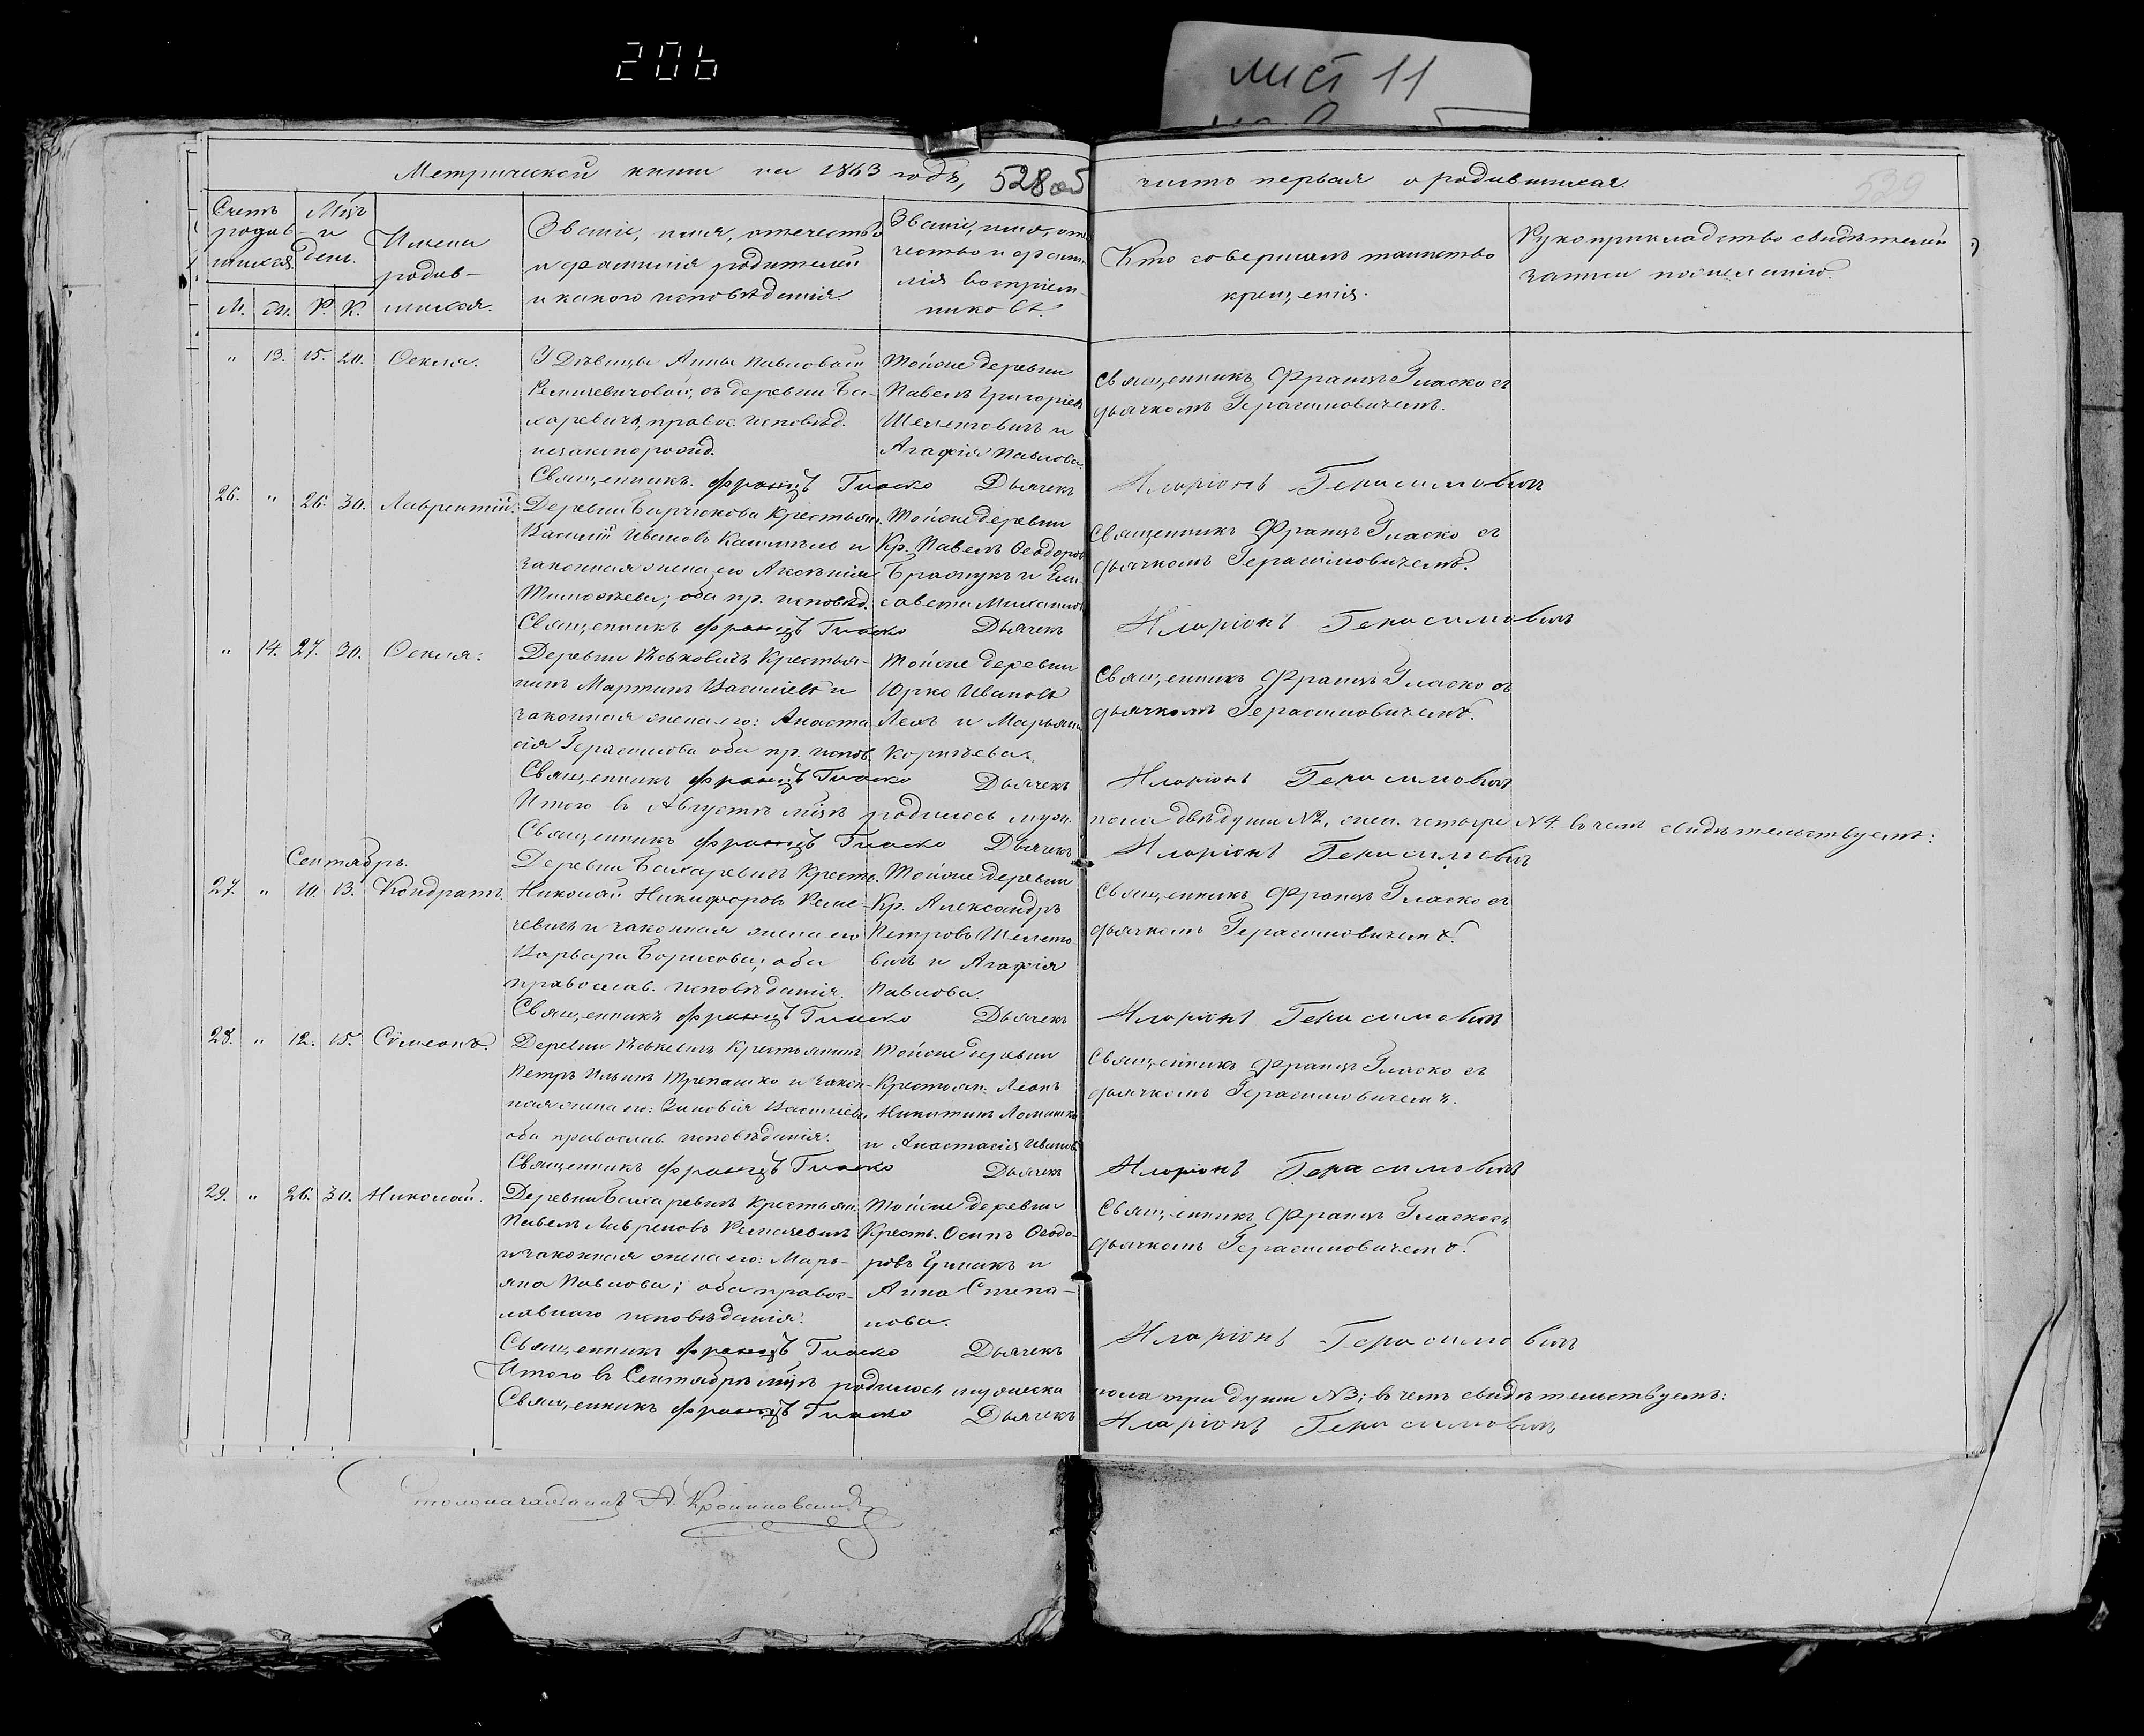 206
лист 11
Метрической книги на 1863 годъ,
528 об
часть первая о родившихся.
529
Счетъ родив-шихся.
М. Ж.
Мѣсяцъ и день.
Р. К.
Имена
родив-
шихся.
Званіе, имя, отчество
и фамилія родителей
и какого исповѣданія.
Званіе, имя, от-
чество и фами-
лія воспріем-
никовъ.
Кто совершалъ таинство
крещенія.
Рукоприкладство свидѣтелей
записи по желанію.
" 13. 15. 20. Ѳекла.
У Дѣвицы Анны Павловой
съ деревни Ба-
харевичъ, правос. исповѣд.
незаконорожд.
Тойже деревни
Павелъ Григоріев
и
Агафія Павлова.
Священникъ Францъ Гласко съ
дьячкомъ Герасимовичемъ.
Священникъ Францъ Гласко Дьячекъ Иларіонъ Герасимовичъ
26. " 26. 30. Лаврентій.
Деревни Крестьян.
Василій Ивановъ и
законная жена его Аксенія
Тимоѳѣева; оба пр. исповѣд.
Тойже деревни
Кр. Павелъ Ѳеодоров
и Ели-
савета Михайло
Священникъ Францъ Гласко съ
дьячкомъ Герасимовичемъ.
Священникъ Францъ Гласко Дьячекъ Иларіонъ Герасимовичъ
" 14. 27. 30. Ѳекла.
Деревни Крестья-
нинъ Мартинъ Васильевъ и
законная жена его: Анаста
сія Герасимова оба пр. испов.
Тойже деревни
Юрко Ивановъ
Лехъ и Марьяна
Корнѣева.
Священникъ Францъ Гласко съ
дьячкомъ Герасимовичемъ.
Священникъ Францъ Гласко Дьячекъ Иларіонъ Герасимовичъ
Итого въ Августѣ мцѣ родилось муж. пола двѣ души №2, жен. четыре №4. въ чемъ свидѣтельствуемъ:
Священникъ Францъ Гласко Дьячекъ Иларіонъ Герасимовичъ
Сентябрь.
27. " 10. 13. Кондратъ.
Деревни Бахаревичъ Кресть.
Николай Никифоровъ Реме-
чевичъ и законная жена его
Варвара Борисова; оба
православ. исповѣданія.
Тойже деревни
Кр. Александръ
Петровъ Шелето-
вичъ и Агафія
Павлова.
Священникъ Францъ Гласко съ
дьячкомъ Герасимовичемъ.
Священникъ Францъ Гласко Дьячекъ Иларіонъ Герасимовичъ
28. " 12. 15. Сѵмеонъ.
Деревни Крестьянинъ
Петръ Ильинъ Трепашко и закон-
ная жена его: Зиновія Васильева
оба православ. исповѣданія.
Тойже деревни
Крестьян. Леонъ
Никитинъ
и Анастасія Иванов
Священникъ Францъ Гласко съ
дьячкомъ Герасимовичемъ.
Священникъ Францъ Гласко Дьячекъ Иларіонъ Герасимовичъ
29. " 26. 30. Николай.
Деревни Бахаревичъ Крестьян.
Павелъ Ремечевичъ
и законная жена его: Марь-
яна Павлова; оба правос-
лавнаго исповѣданія.
Тойже деревни
Кресть. Осипъ Ѳеодо-
ровъ и
Анна Степа-
нова.
Священникъ Францъ Гласко съ
дьячкомъ Герасимовичемъ.
Священникъ Францъ Гласко Дьячекъ Иларіонъ Герасимовичъ
Итого въ Сентябрѣ мцѣ родилось мужеска пола три души №3; въ чемъ свидѣтельствуемъ:
Священникъ Францъ Гласко Дьячекъ Иларіонъ Герасимовичъ
Столоначальникъ